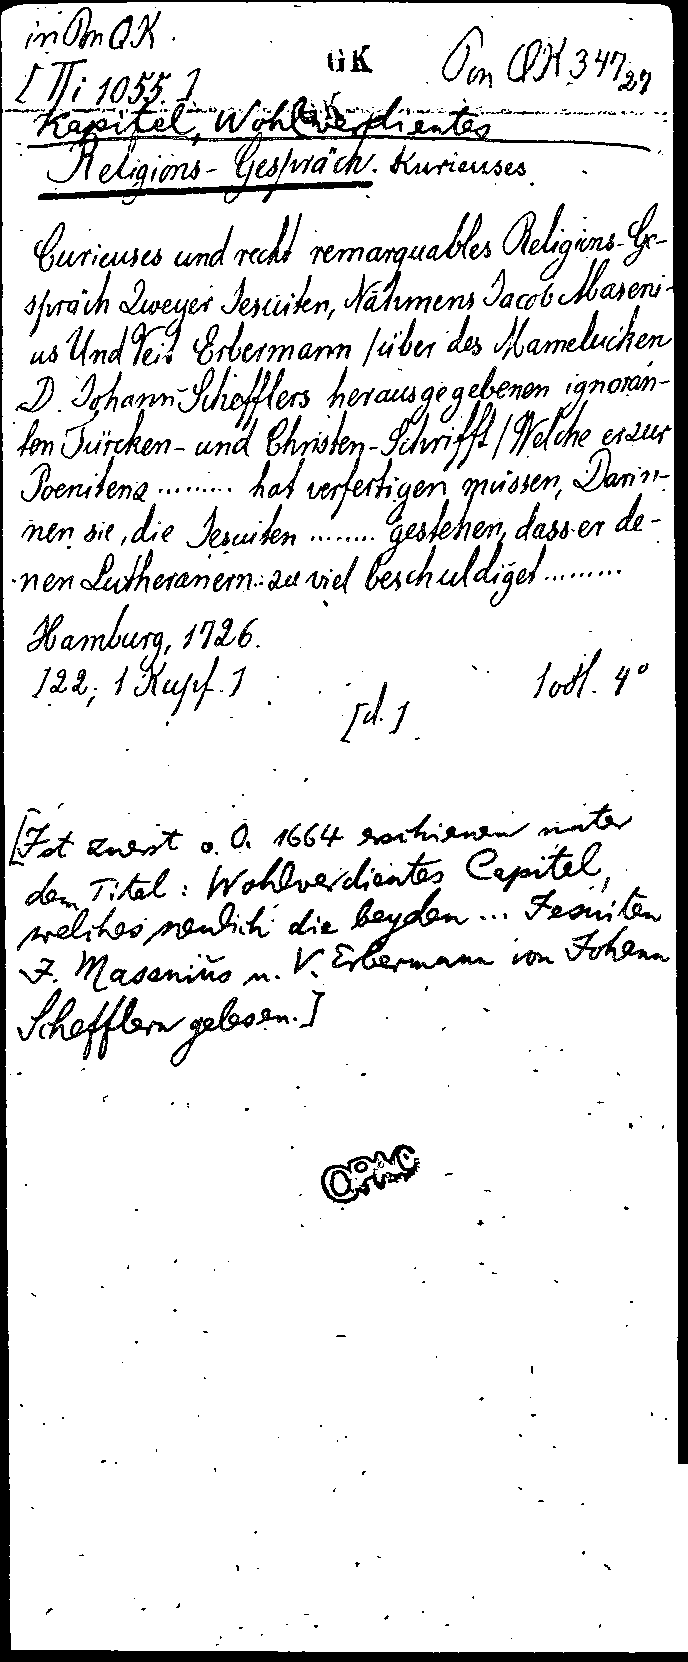 in Pon QK.
GK
Pon QK 347
27
[ IIi 1055. ]
Kapitel, Wohlverdientes
Religions-Gespräch. Kurieuses.
Curieuses und recht remarquables Religions-Ge-
spräch Zweyer Jesuiten, Nahmens Jacob Maseni-
us Und Veit Erbermann / über des Mamelucken
D. Johann Schefflers herausgegebenen ignoran-
ten Türcken- und Christen-Schrifft / Welche er zur
Poenitenz ......... hat verfertigen müssen, Darin-
nen sie, die Jesuiten ........ gestehen, dass er de-
nen Lutheranern zu viel beschuldiget .........
Hamburg, 1726.
[22; 1 Kupf.]
4°
[d.]
[Ist zuerst o. O. 1664 erschienen unter
dem Titel: Wohlverdientes Capitel,
welches neulich die beyden ... Jesuiten
J. Masenius u. V. Erbermann von Johann
Schefflern gelesen.]
OPAC